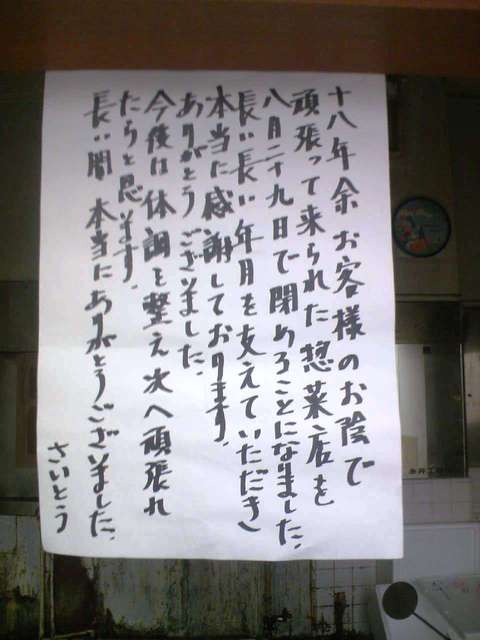 十八年余お客様のお陰で
頑張って来られた惣菜店を
八月二十九日で閉めることになりました、
長い長い年月を支えていただき
本当に感謝しております、
ありがとうございました、
今後は体調を整え次へ頑張れ
たらと思います、
長い間本当にありがとうございました、
さいとう